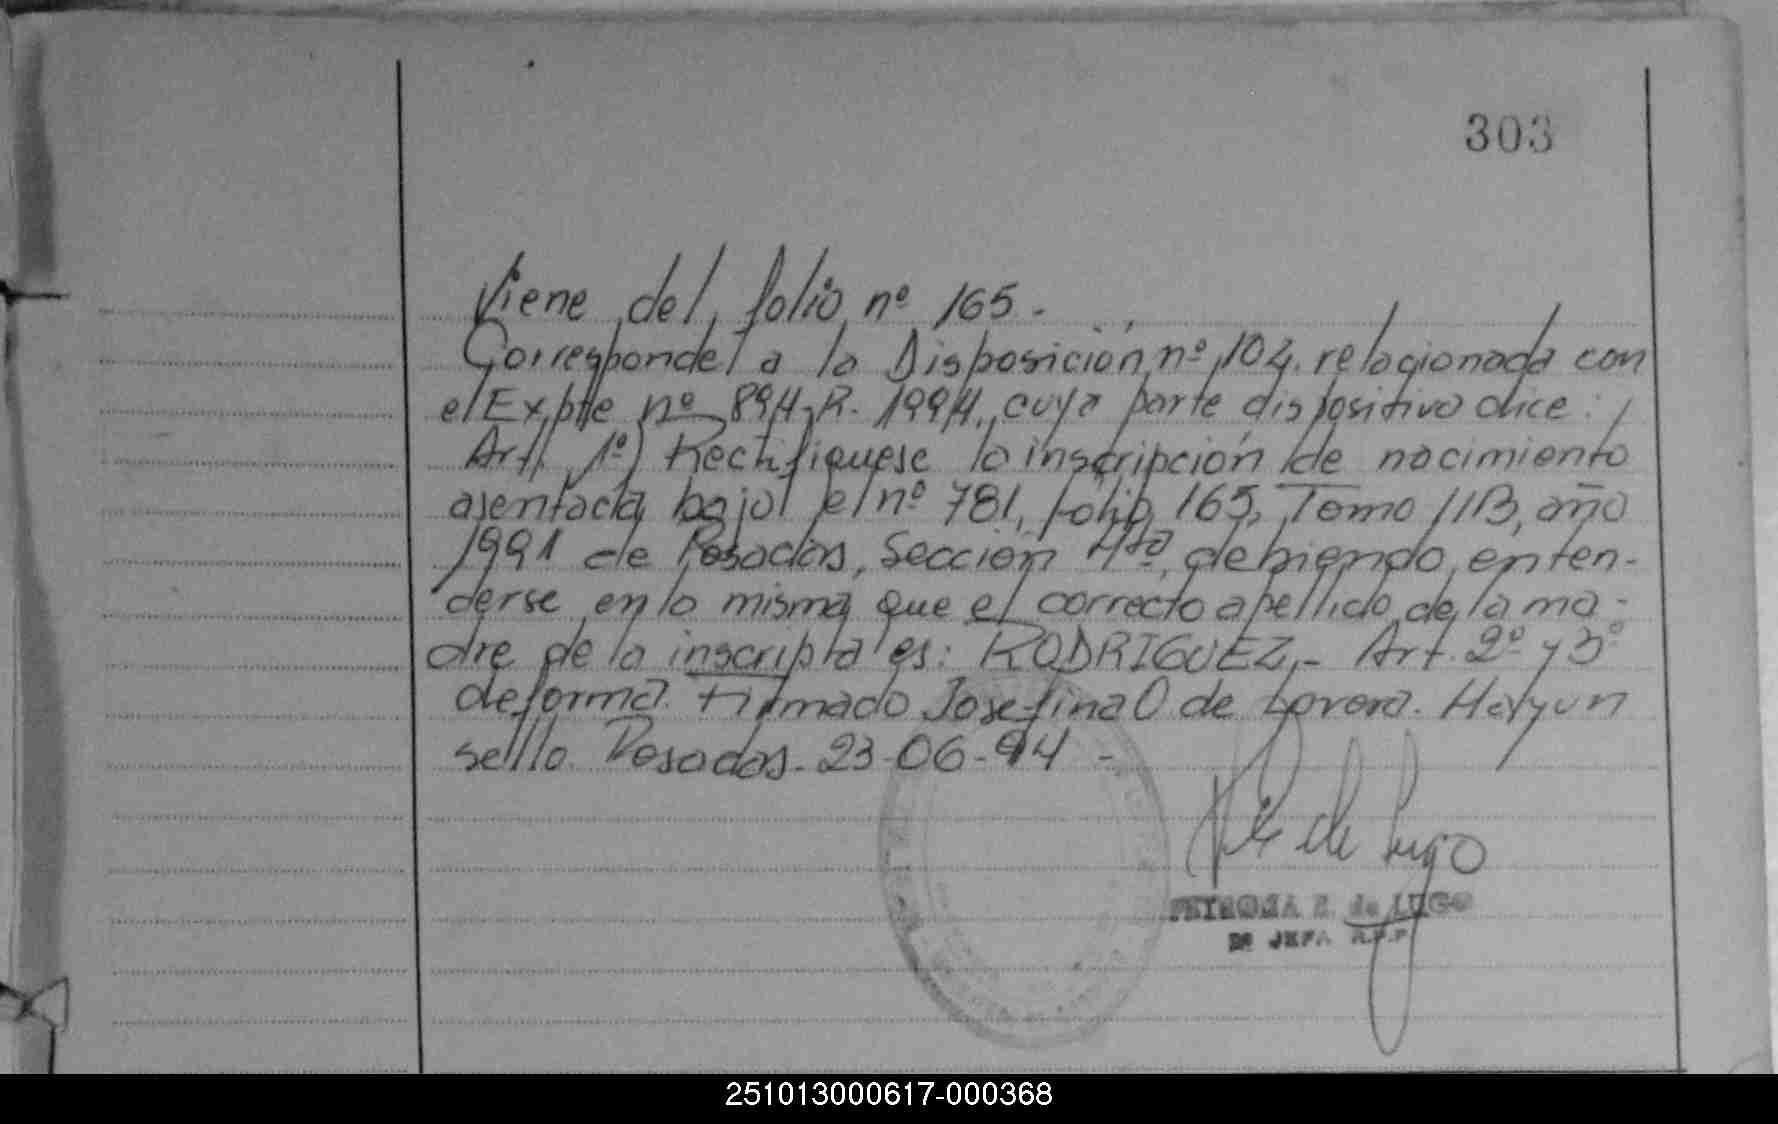 303
Viene del folio nº 165.
Corresponde a la Disposición nº 104, relacionada con
el Expte nº 894-R-1994, cuya parte dispositiva dice:
Art. 1º) Rectifíquese la inscripción de nacimiento
asentada bajo el nº 781, folio 165, Tomo IIB, año
1991 de Posadas, Sección 4ta, debiendo enten-
derse en la misma que el correcto apellido de la ma-
dre de la inscripta es: RODRIGUEZ.- Art. 2º y 3º
de forma. Firmado Josefina O de Lovera. Hay un
sello. Posadas. 23-06-94-
de Lugo
de LUGO
JEFA R.P.P.
251013000617-000368